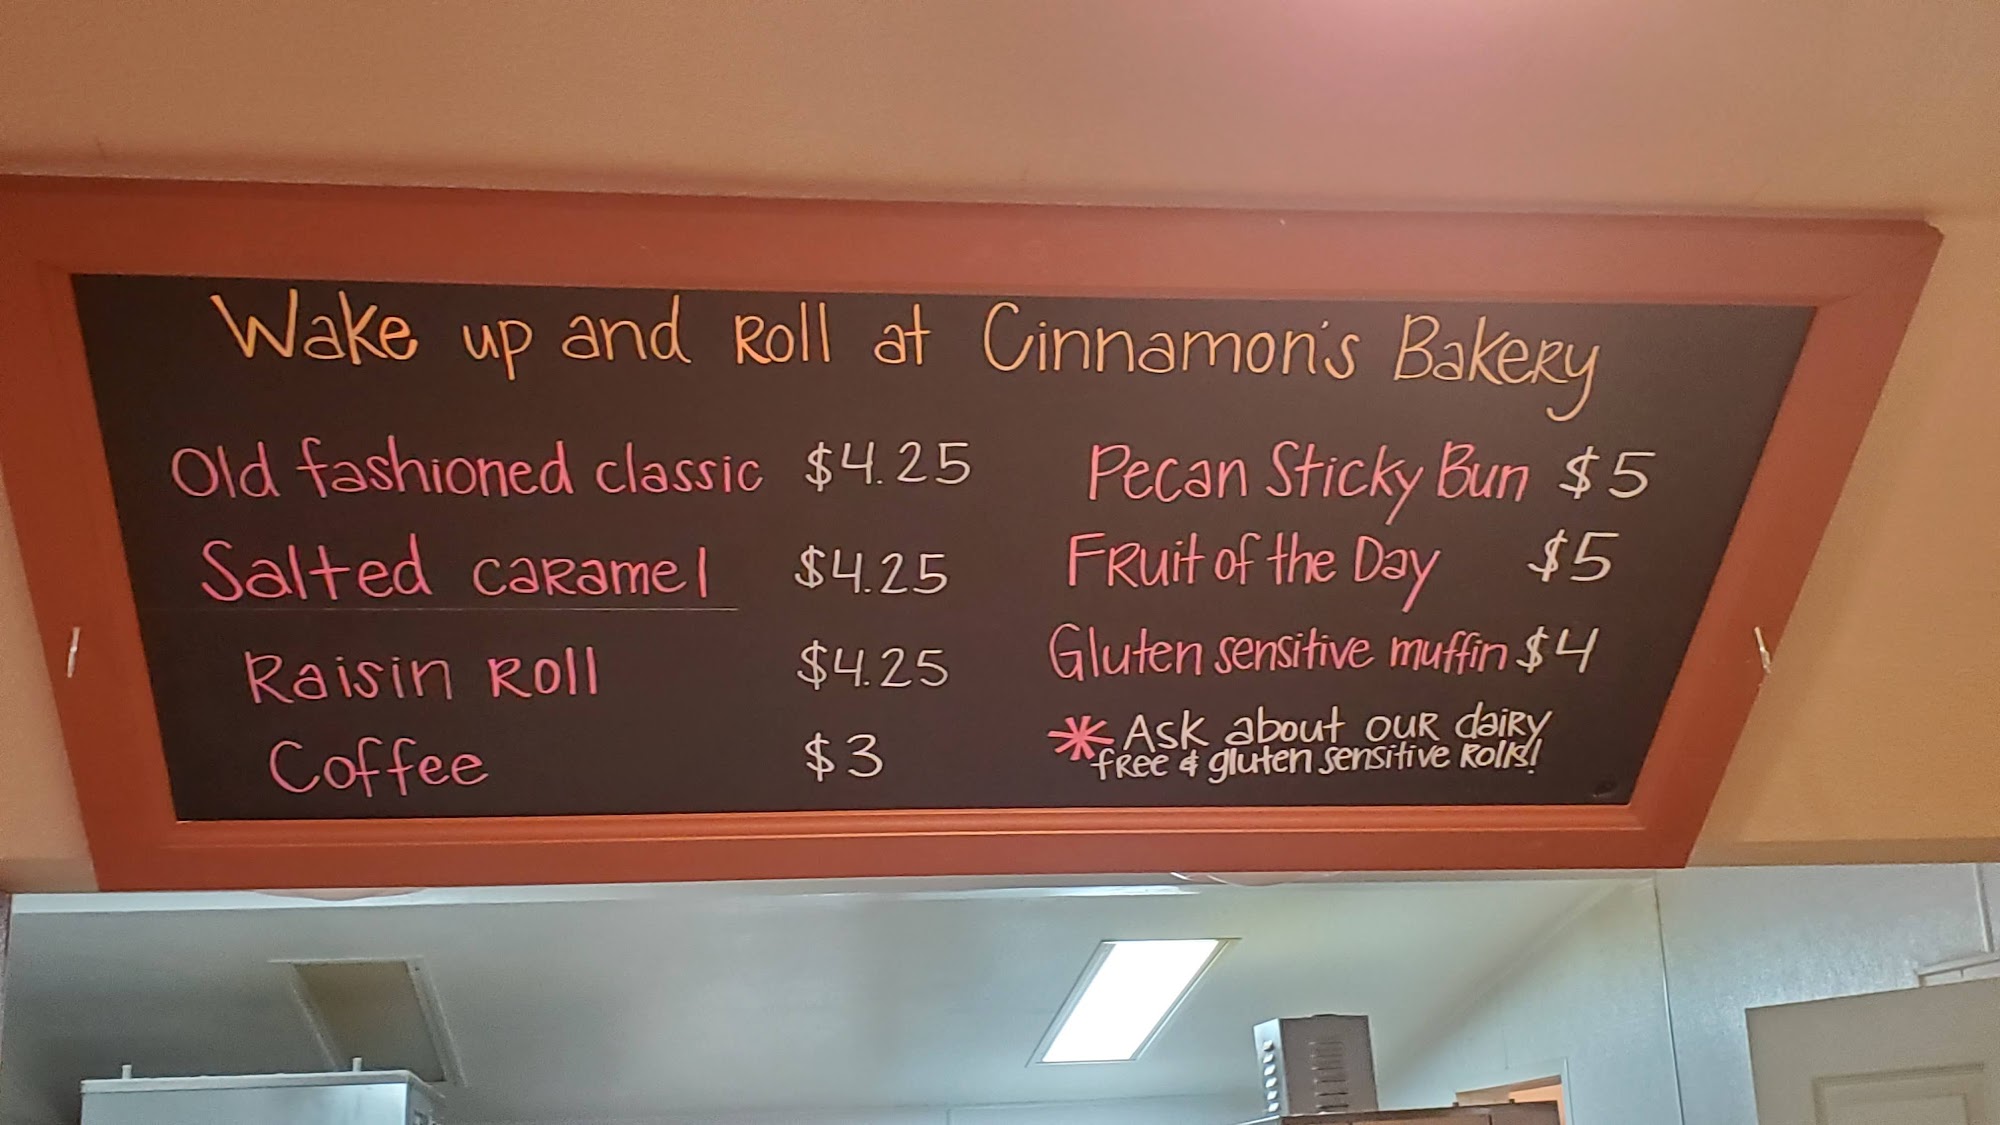 Wake up and Roll at Cinnamon's Bakery
Old fashioned classic $4.25
Salted caramel $4.25
Raisin Roll $4.25
Coffee $3
Pecan Sticky Bun $5
Fruit of the Day $5
Gluten sensitive muffin $4
* Ask about our dairy
free & gluten sensitive Rolls!